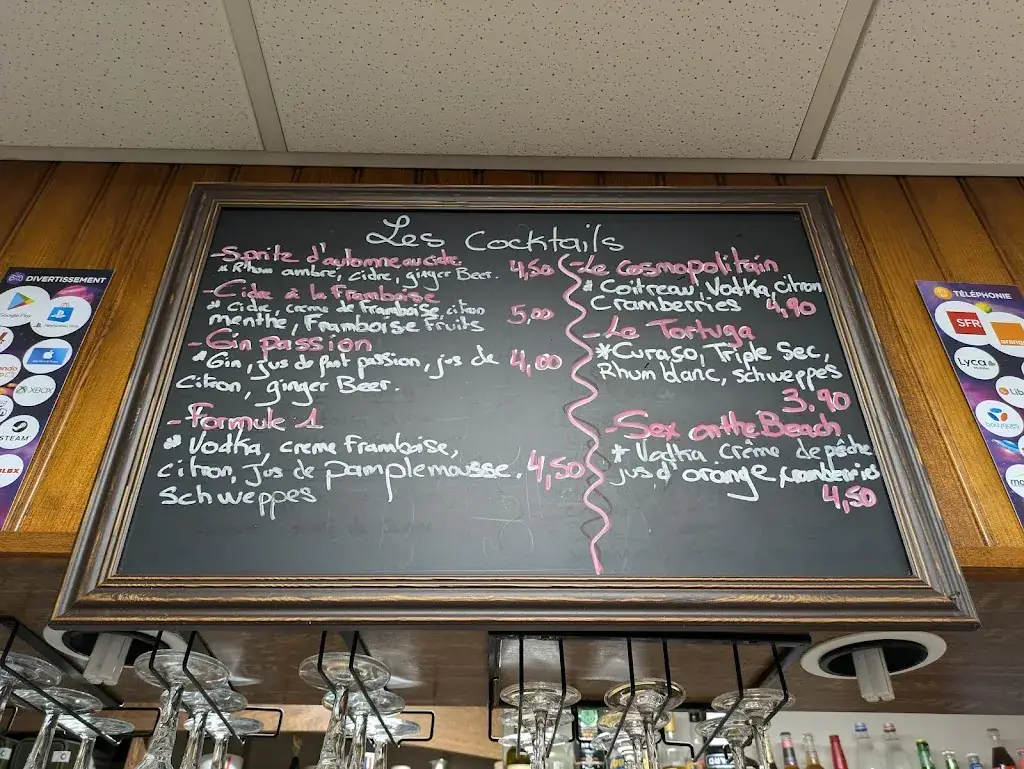 Les Cocktails
-Spritz d'automne au cidre
* Rhum ambré, cidre, ginger Beer. 4,50
-Cidre à la Framboise
* Cidre, creme de framboise, citron
menthe, Framboise fruits 5,00
-Gin passion
* Gin, jus de fruit passion, jus de 4,00
Citron, ginger Beer.
-Formule 1
* Vodka, creme Framboise,
citron, Jus de pamplemousse. 4,50
Schweppes
-Le Cosmopolitain
* Coitreau, Vodka, citron
Cramberries 4,90
-Le Tortuga
*Curaso, Triple Sec,
Rhum blanc, schweppes
3.90
-Sex on the Beach
* Vodka crème de pêche
jus d'orange, cramberries
4,50
DIVERTISSEMENT
Google Play
PlayStation
XBOX
STEAM
TÉLÉPHONIE
SFR
orange
Lyca
Mobile